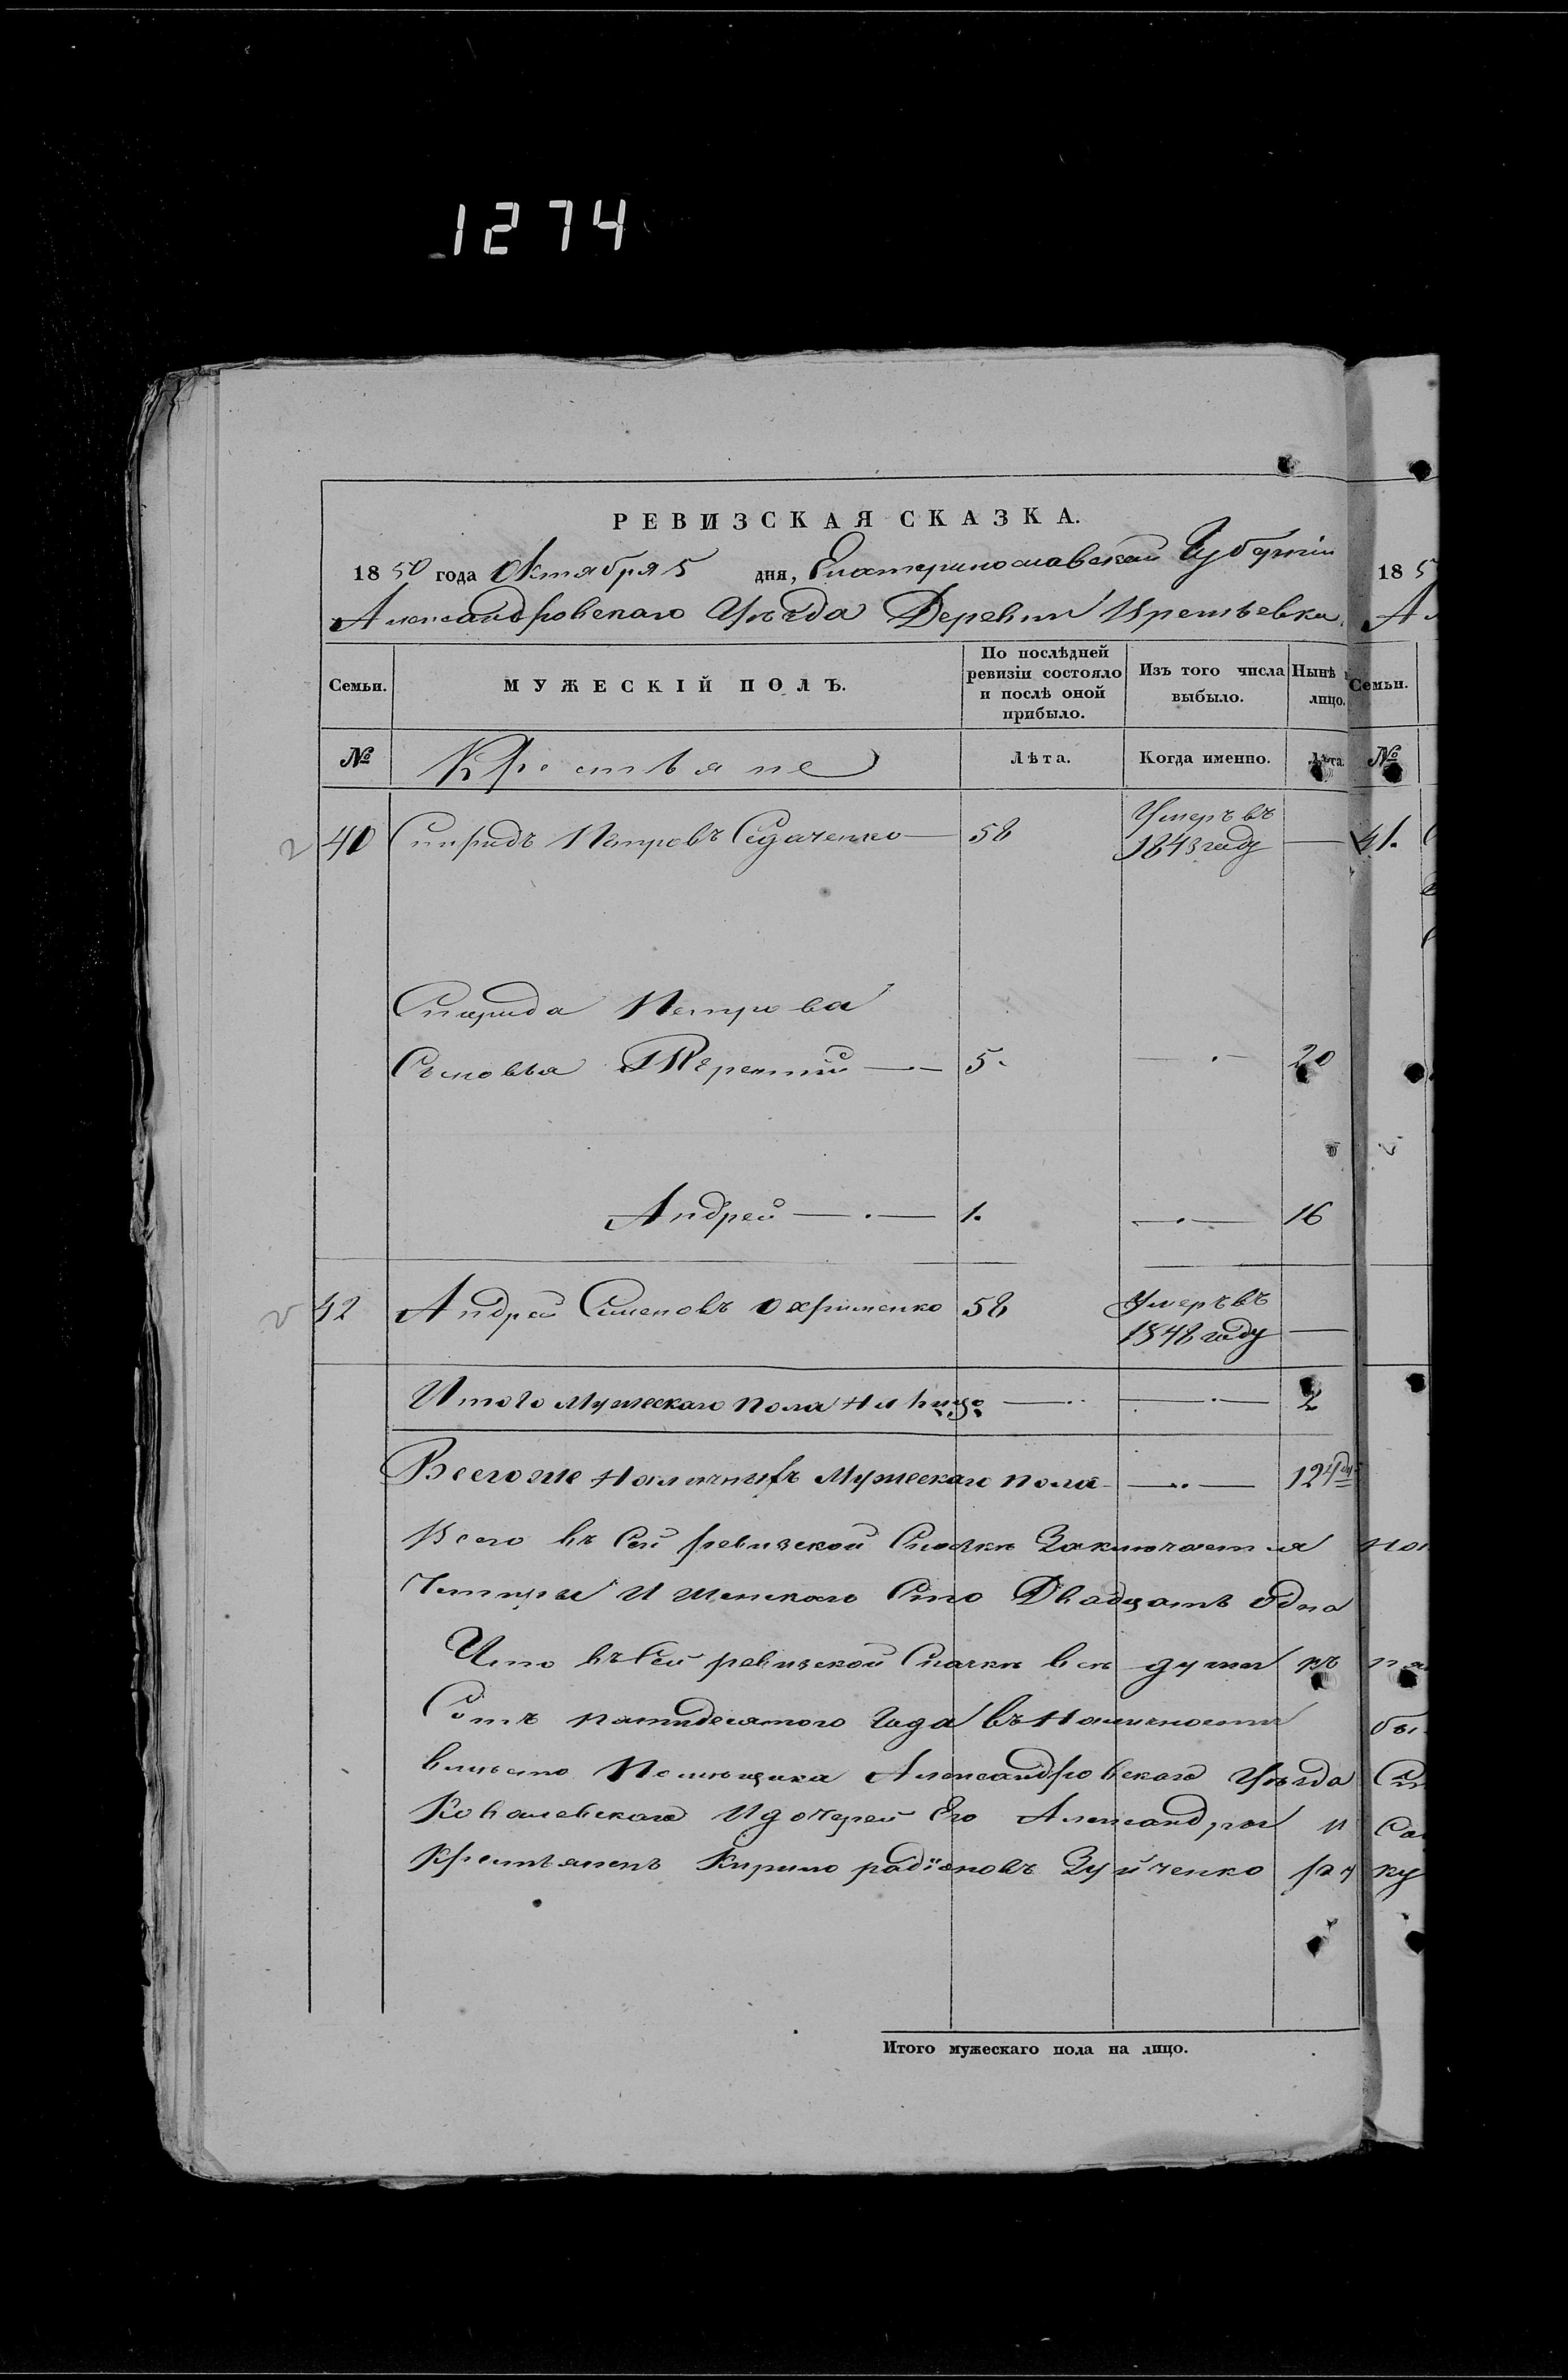 1274
РЕВИЗСКАЯ СКАЗКА.
1850 года Октября 5 дня, Екатеринославской Губернiи
Александровскаго Уѣзда Деревни
Семьи. МУЖЕСКІЙ ПОЛЪ. По послѣдней ревизіи состояло и послѣ оной прибыло. Изъ того числа выбыло. Нынѣ лицо.
№ Крестьяне Лѣта. Когда именно. Лѣта.
40 Спиридъ Петровъ 58 Умеръ въ 1843 году —
Спирида Петрова
Сыновья Терентий — 5. — 20
Андрей — 1. — 16
42 Андрей Семеновъ Охрименко 58 Умеръ въ 1848 году —
Итого мужескаго пола на лицо — — 2
Всего же наличныхъ мужескаго пола — 124
Всего въ сей ревизской сказкѣ заключается
Четыры и женскаго сто двадцать одна
Что въ сей ревизской сказкѣ всѣ души
Сотъ пятидесятого года въ наличности
вмѣсто Помѣщика Александровскаго Уѣзда
Ковалевскаго и дочерей Его Александры и
Крестьяненъ Кирило радіоновъ Зуйченко
Итого мужескаго пола на лицо.
185
Семьи.
№
41.